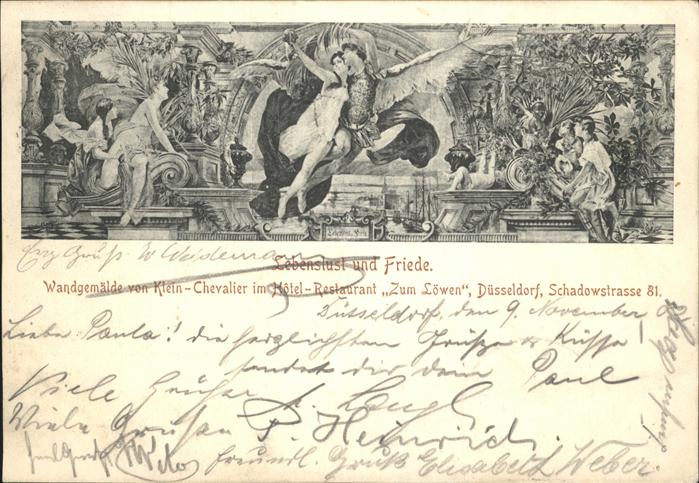 Lebenslust und Friede.
Gruß W Weidemann
Wandgemälde von Klein-Chevalier im Hôtel-Restaurant „Zum Löwen", Düsseldorf, Schadowstrasse 81.
Düsseldorf, den 9. November
Liebe Paula! die herzlichsten Grüße & Küsse!
sendet dir dein Paul
Viele Grüße
Viele Grüße P. Heinrich.
freundl. Gruß Elisabeth Weber.